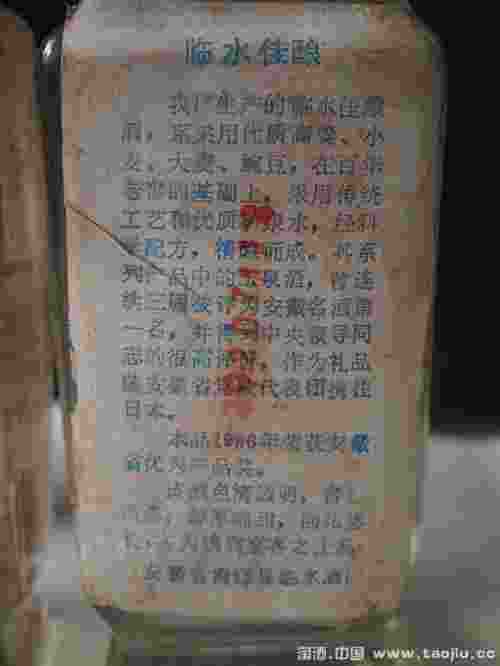 临水佳酿
我厂生产的临水佳酿
酒，系采用优质高粱、小
麦、大麦、豌豆，在百年
老窖的基础上，采用传统
工艺和优质矿泉水，经科
学配方，精酿而成。其系
列产品中的玉泉酒，曾连
续三届被评为安徽名酒第
一名，并得到中央领导同
志的很高评价，作为礼品
随安徽省 代表团携往
日本。
本品1986年荣获安徽
省优秀产品奖。
该酒色清透明，
醇厚
安徽省霍邱县临水酒
淘酒.中国 www.taojiu.cc